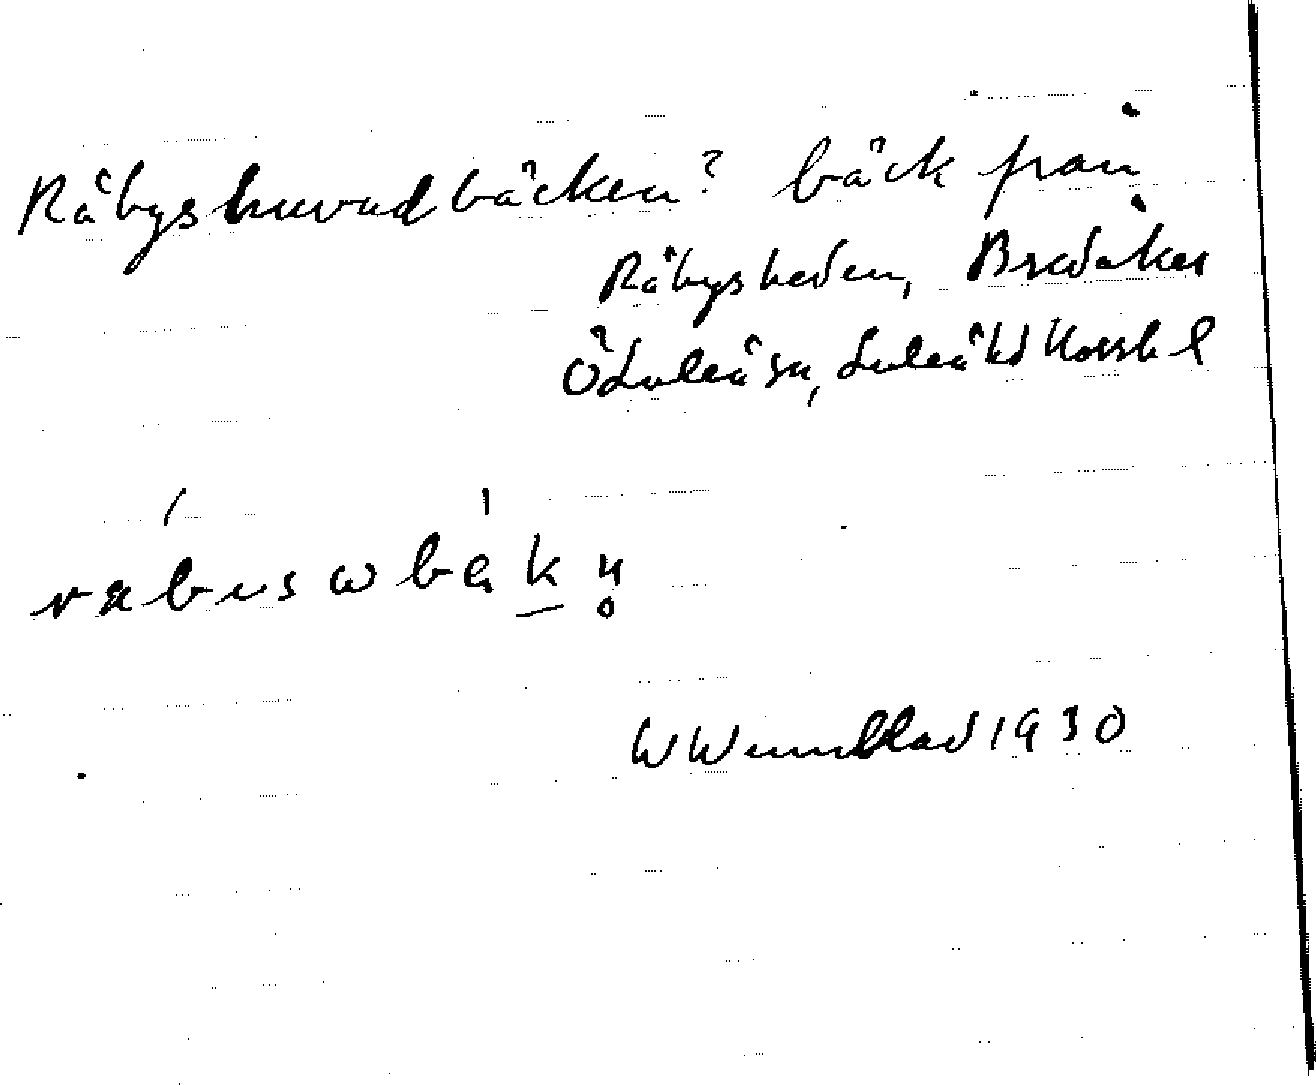 Råbyshuvudbäcken? bäck från
Råbysheden, Bredåker
ÖLuleå sn, Luleå ld Norrb l
W Wennblad 1930